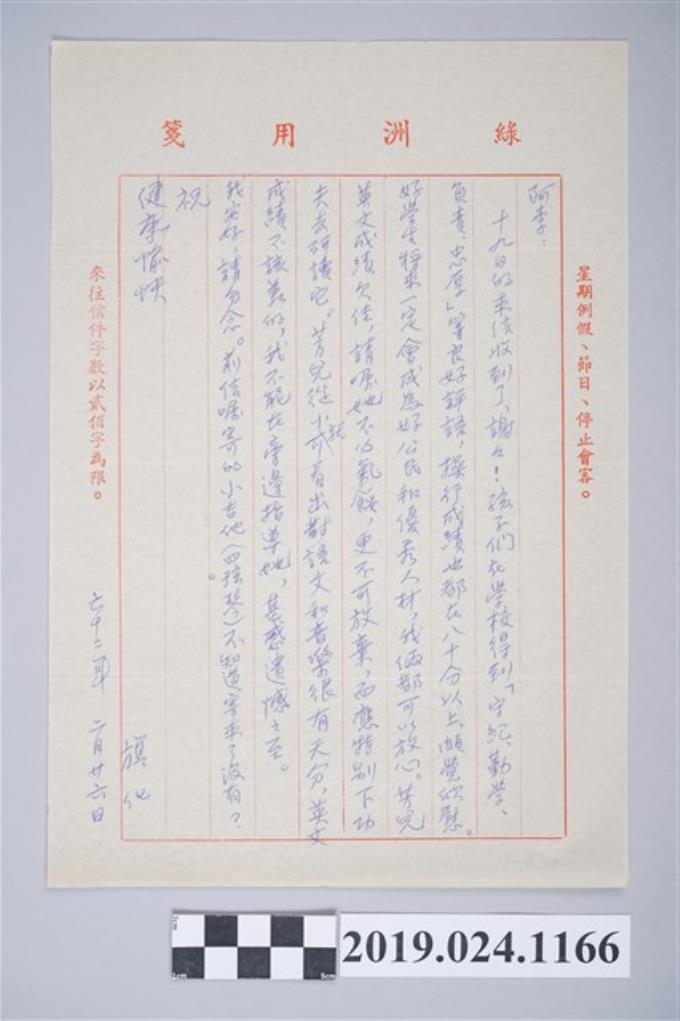 綠洲用箋
星期例假、節日、停止會客。
阿李:
十九日的來信收到了、謝々!孩子們在學校得到「守紀、勤學、
負責、忠厚」等良好評語,操行成績也都在八十分以上,頗覺欣慰。
好學生將來一定會成為好公民和優秀人材,我倆都可以放心。芳兒
英文成績欠佳,請囑她不必氣餒,更不可放棄,而應特別下功
夫去研讀它。芳兒從小就可看出對語文和音樂很有天分,英文
成績不該差的,我不能在旁邊指導她,甚感遺憾之至。
我安好,請勿念。前信囑寄的小吉他(四弦琴)不知道寄來了沒有?
祝
健康愉快
旗化
六十二年 二月廿六日
來往信件字數以貳佰字為限。
2019.024.1166
1cm
5cm